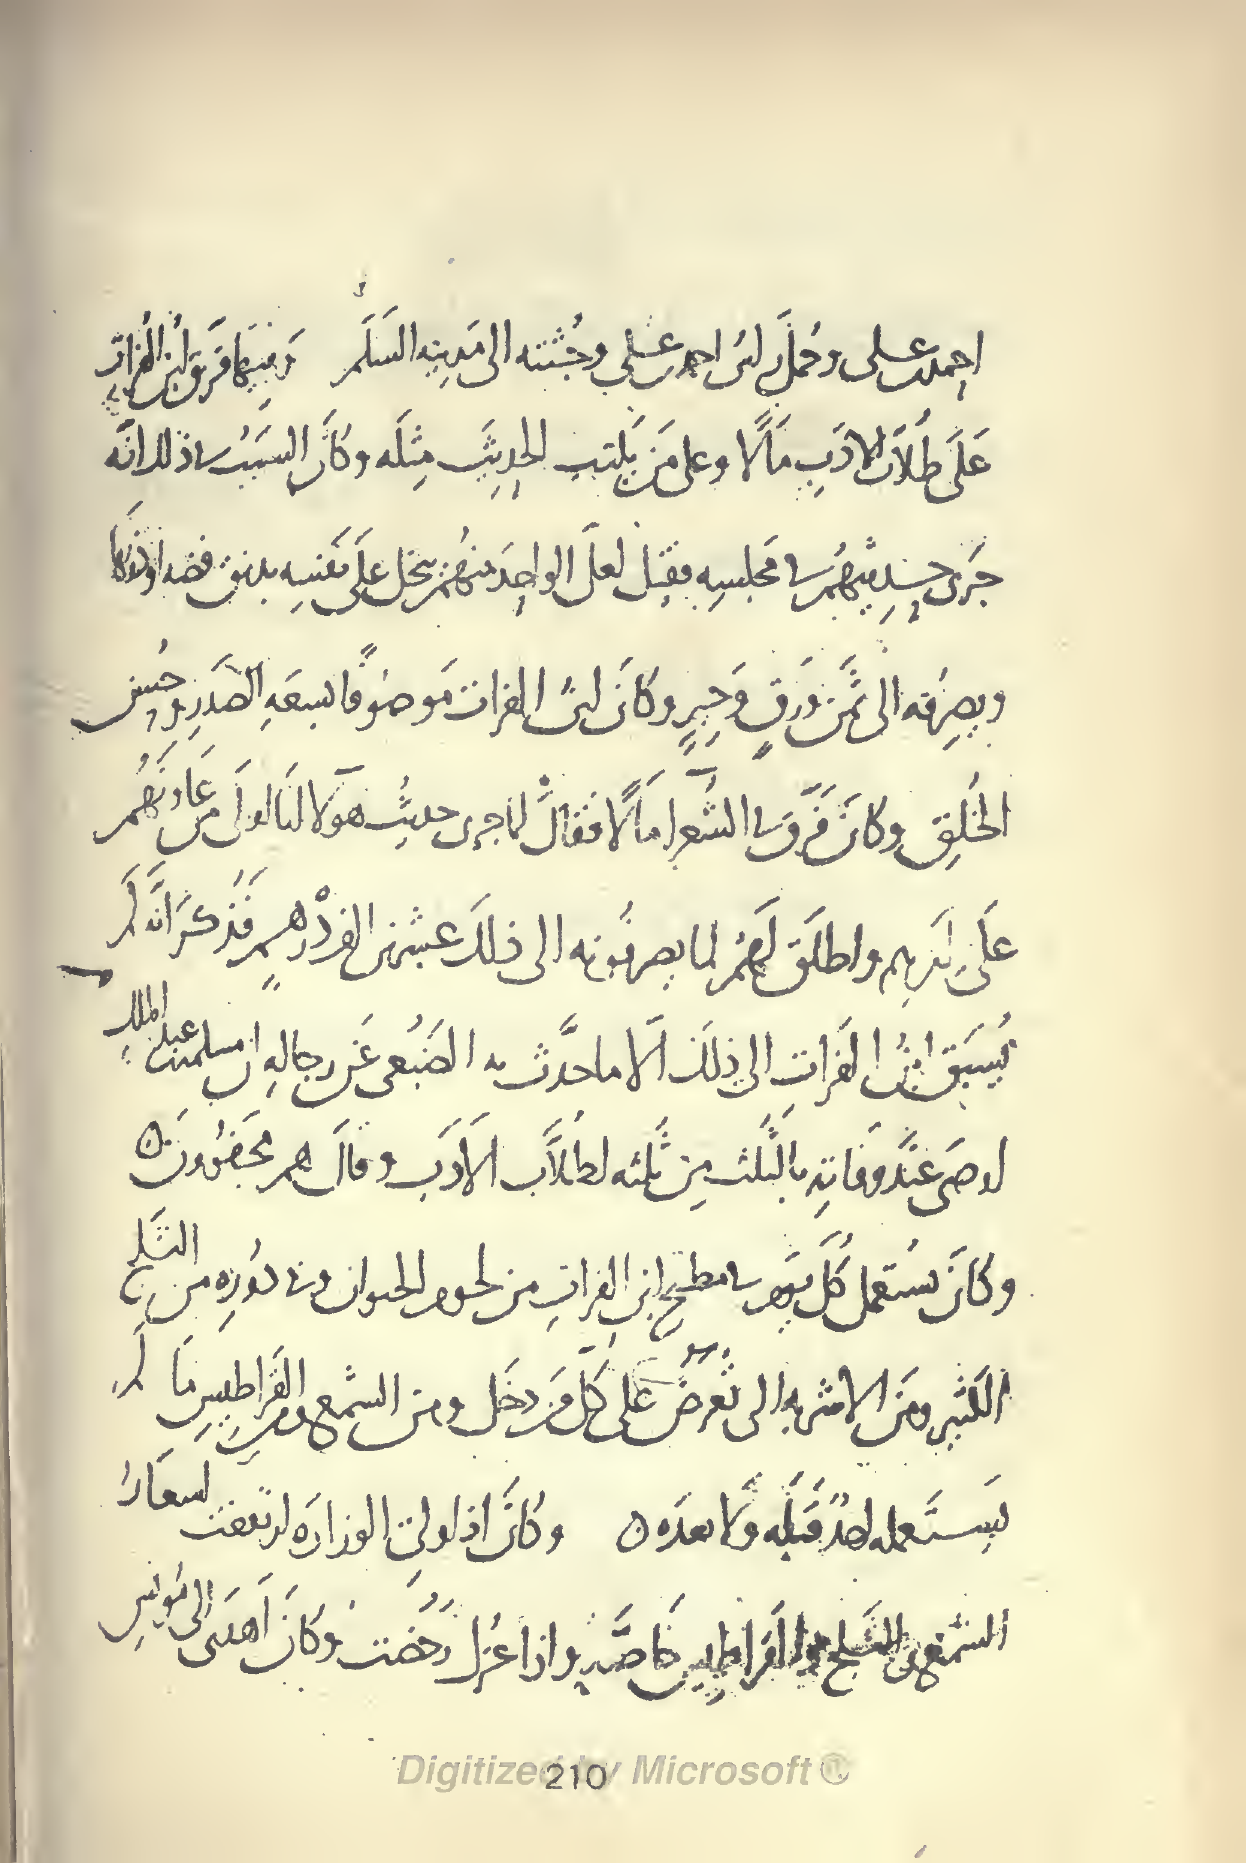 احمد بن علي وحمل راس احمد بن علي وجثته الى مدينه السلم وفيها فرق ابن الفرات
على طلاب الادب مالا وعلى من يكتب الحديث مثله وكان السبب في ذلك انه
جرى حديثهم في مجلسه فقيل لعل الواحد منهم يبخل على نفسه بدانق فضه او دونها
ويصرفه الى ثمن ورق وحبر وكان ابن الفرات موصوفا بسعه الصدر وحسن
الخلق وكان فرق في الشعرا مالا فقال لما جرى حديث هولا انا اولى من عاونهم
على امرهم واطلق لهم لما يصرفونه الى ذلك عشرين الف درهم فذكر انه لم
يسبق ابن الفرات الى ذلك الا ما حدث به الضبعي عن رجاله ان مسلمة بن عبد الملك
اوصى عند وفاته بالثلث من ثلثه لطلاب الادب وقال هم مجفوون ٥
وكان يستعمل كل يوم في مطبخ ابن الفرات من لحوم الحيوان وفي دوره من الثلج
الكثير ومن الاشربه التي تعرض على كل من دخل ومن الشمع ومن القراطيس ما لم
يستعمله احد قبله ولا بعده ٥ وكان اذا ولي الوزاره ارتفعت اسعار
الشمع والثلج والقراطيس خاصه واذا عزل رخصت وكان اهدى الى مونس
Digitized by Microsoft ®
210